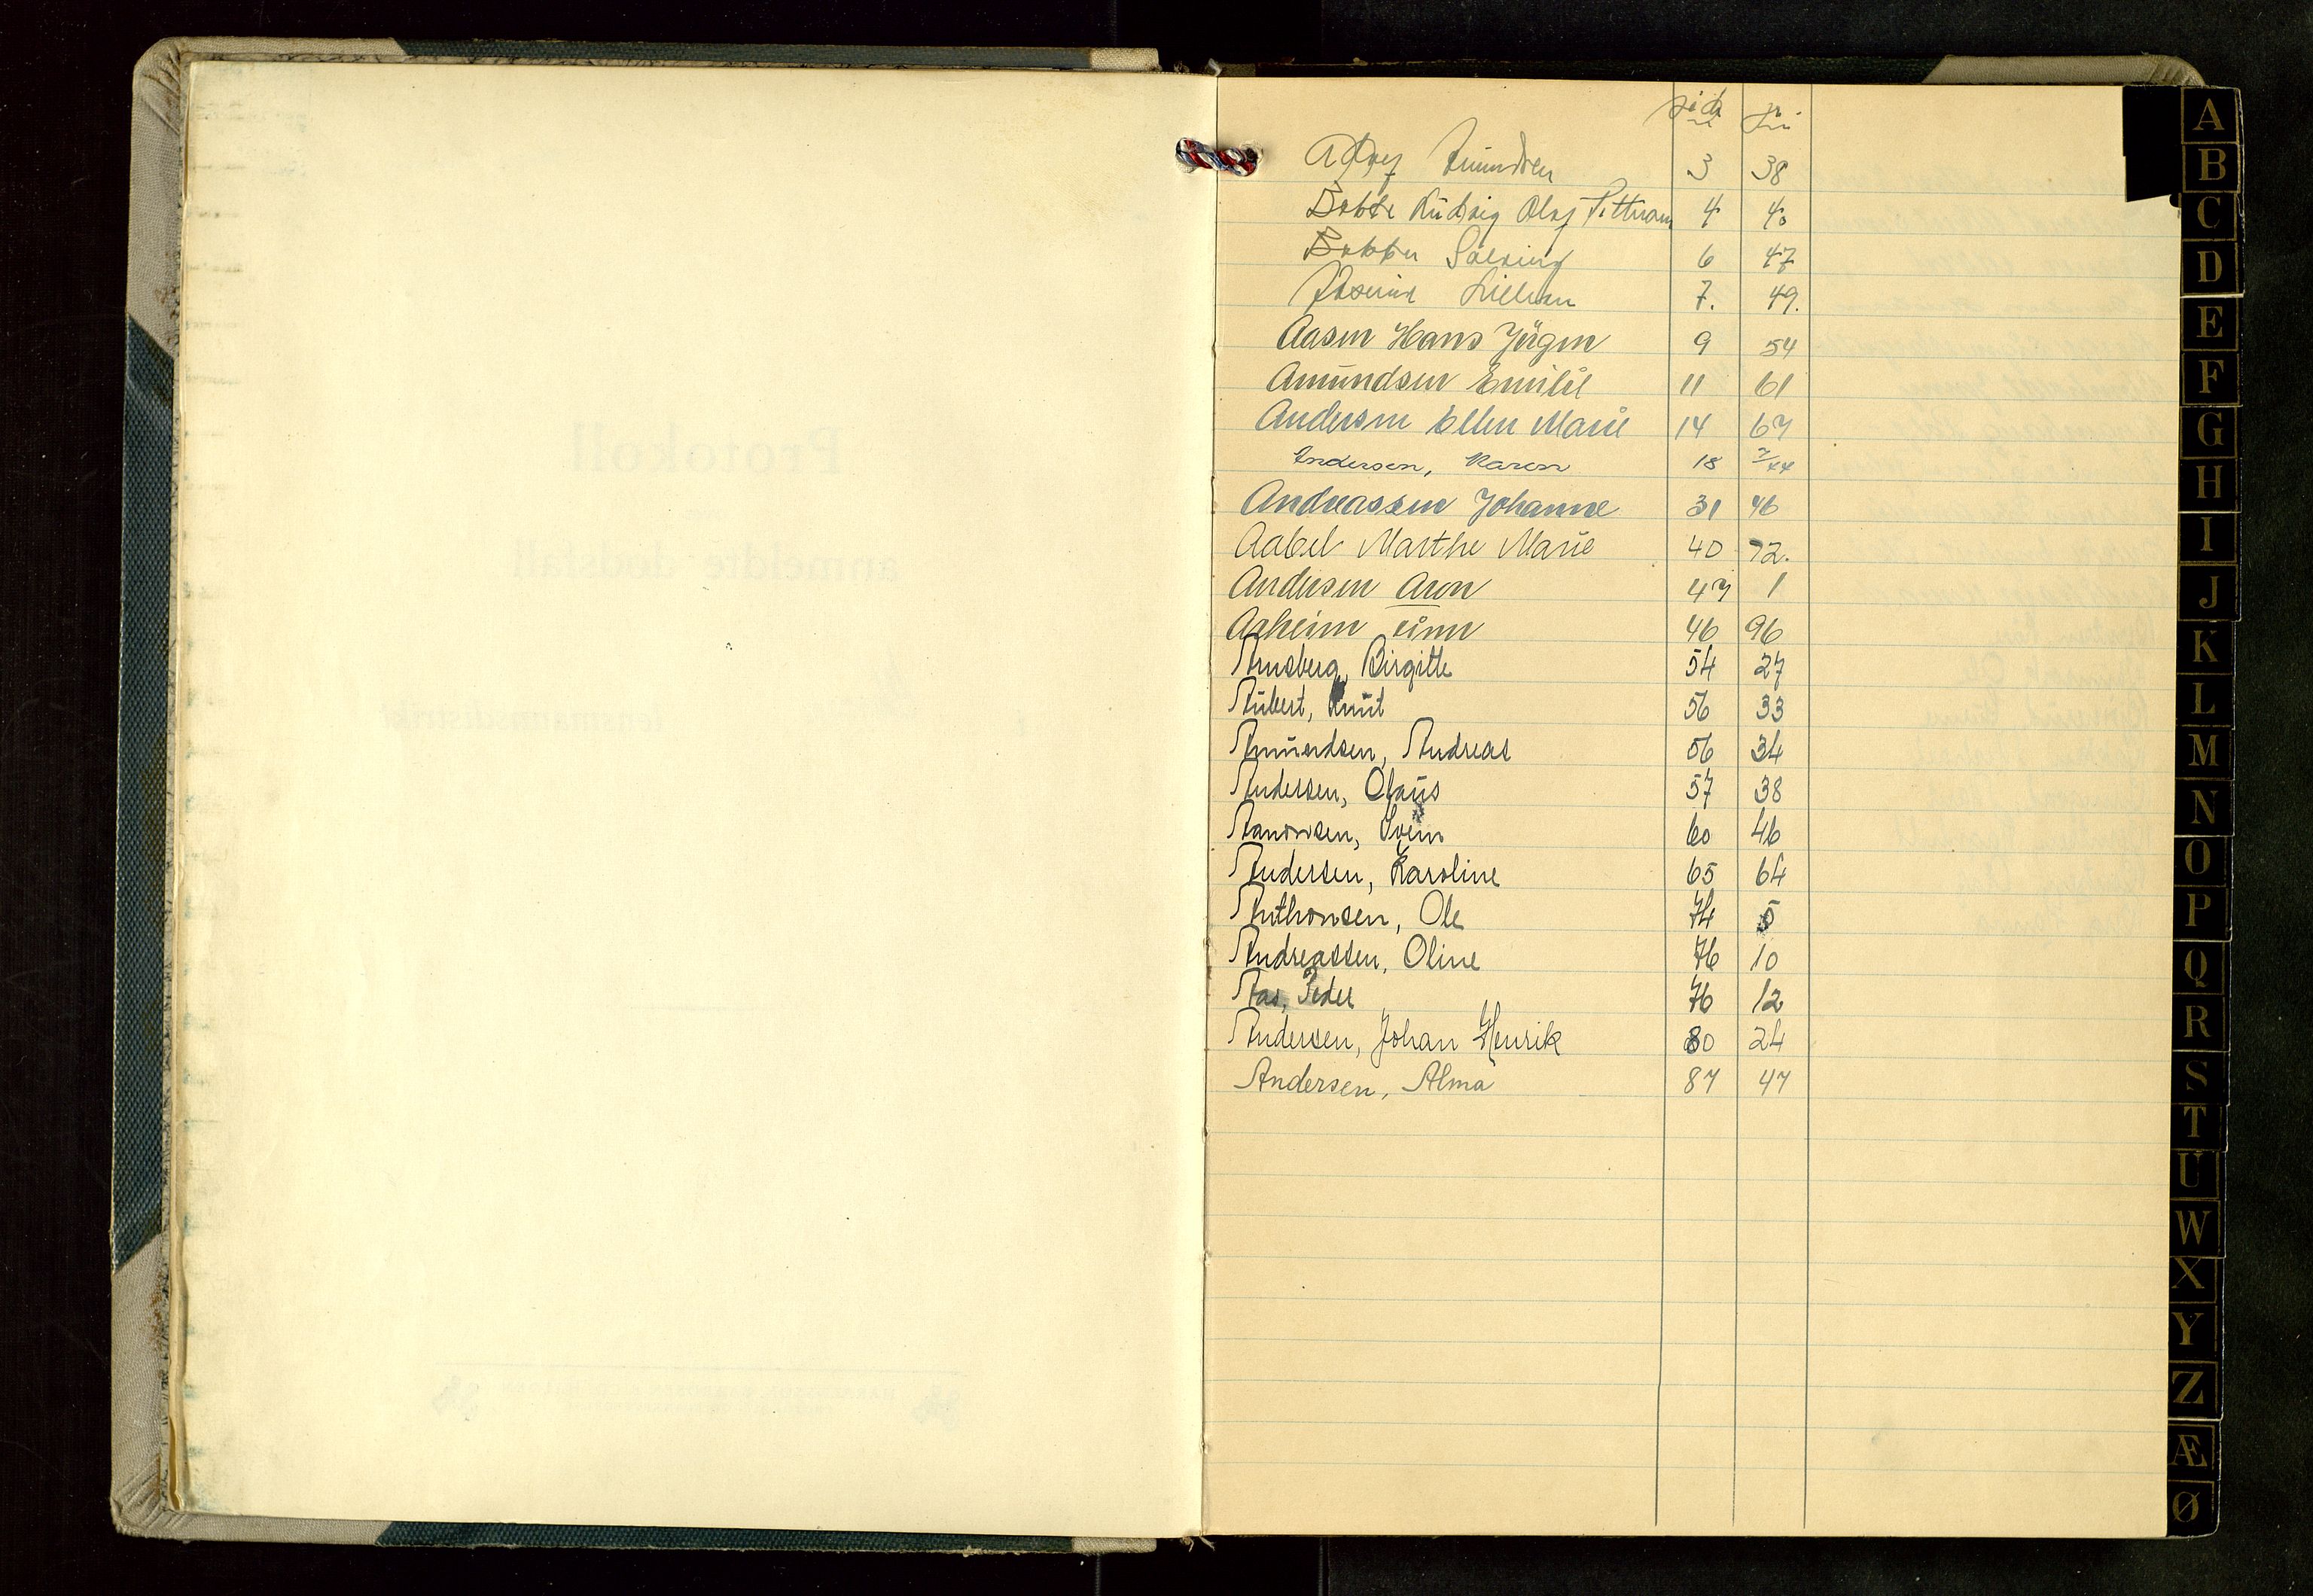 side nr.
3 38
Ludvig Olaf 4 40
6 47
7. 49.
Aasen Hans Jørgen 9 54
Amundsen Emilie 11 61
Andersen Ellen Marie 14 67
Andersen, Karen 18 7/44
Andreassen Johanne 31 46
Aabel Marthe Marie 40 72.
Andersen Aron 47 1
Asheim 46 96
Birgitte 54 27
Aubert, Knut 56 33
Amundsen, Andreas 56 34
Andersen, Olaus 57 38
Aanonsen, Svein 60 46
Andersen, Karoline 65 64
Anthonsen, Ole 74 5
Andreassen, Oline 76 10
Aas, Peder 76 12
Andersen, Johan Henrik 80 24
Andersen, Alma 87 47
A
B
C
D
E
F
G
H
I
J
K
L
M
N
O
P
Q
R
S
T
U
W
X
Y
Z
Æ
Ø